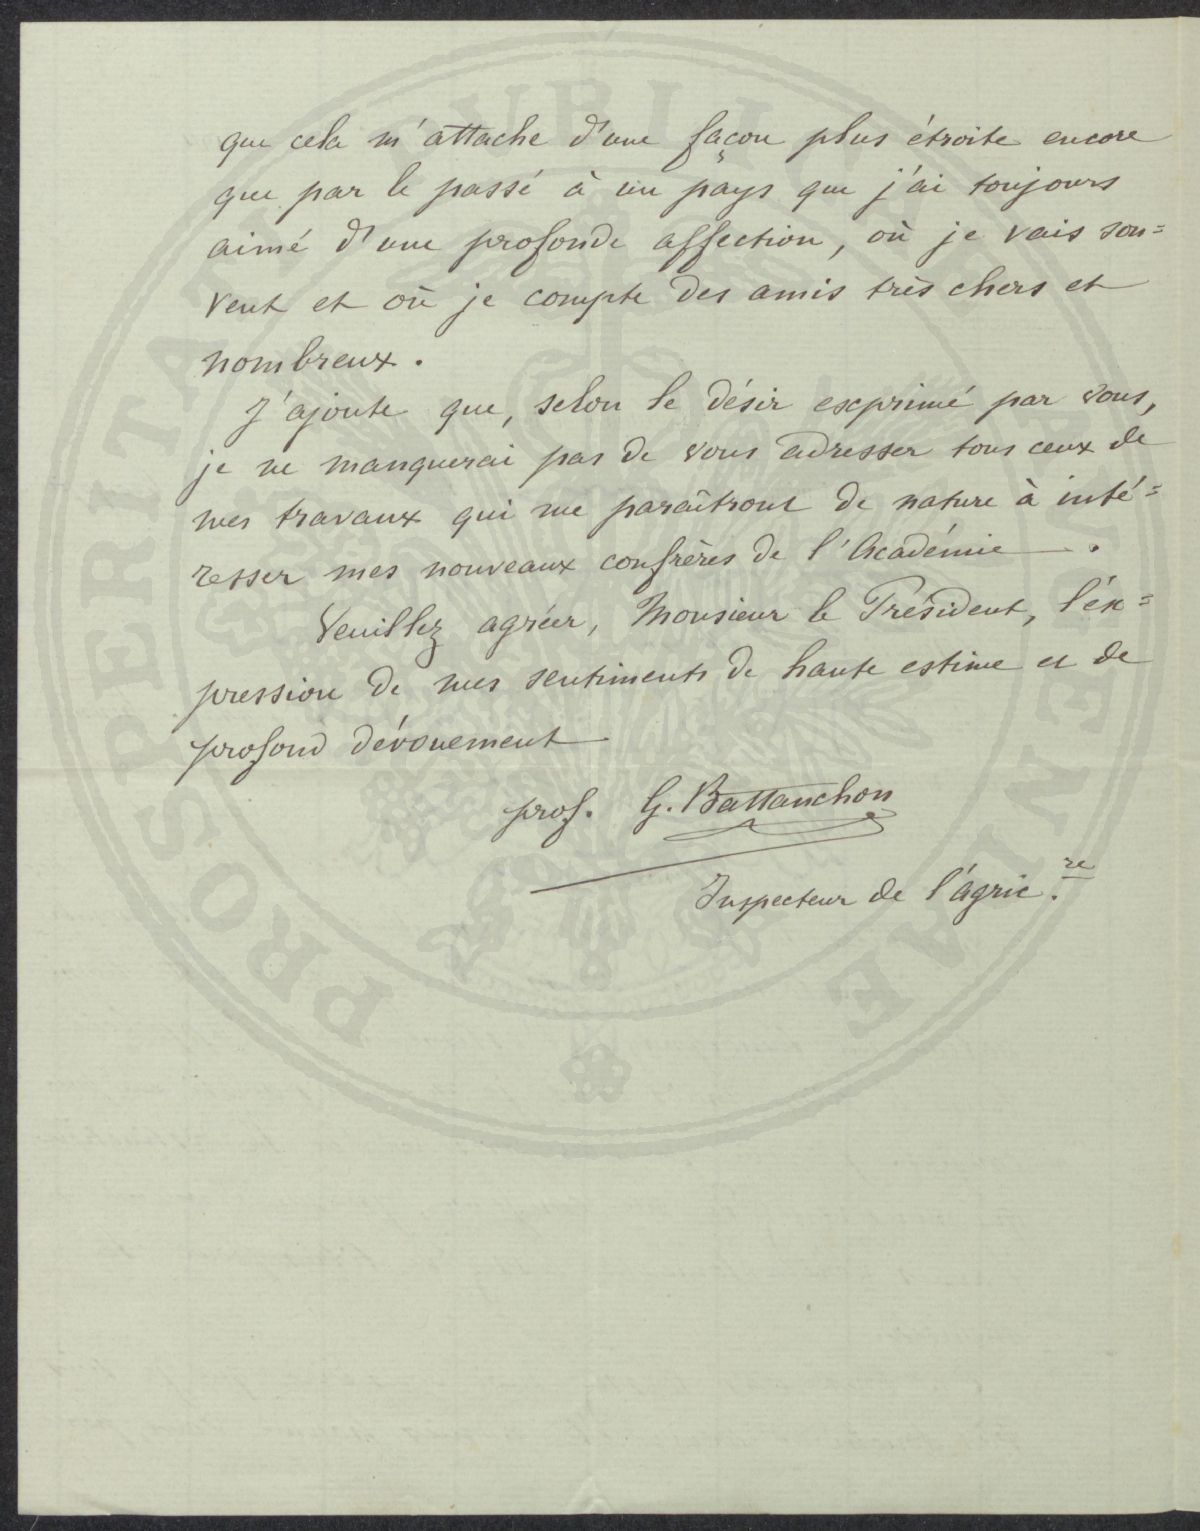 que cela m'attache d'une façon plus étroite encore
que par le passé à un pays que j'ai toujours
aimé d'une profonde affection, où je vais sou=
vent et où je compte des amis très chers et
nombreux.
J'ajoute que, selon le désir exprimé par vous,
je ne manquerai pas de vous adresser tous ceux de
mes travaux qui me paraîtront de nature à inté=
resser mes nouveaux confrères de l'Académie.
Veuillez agréer, Monsieur le Président, l'ex=
pression de mes sentiments de haute estime et de
profond dévouement
prof. G. Battanchon
Inspecteur de l'agric.re